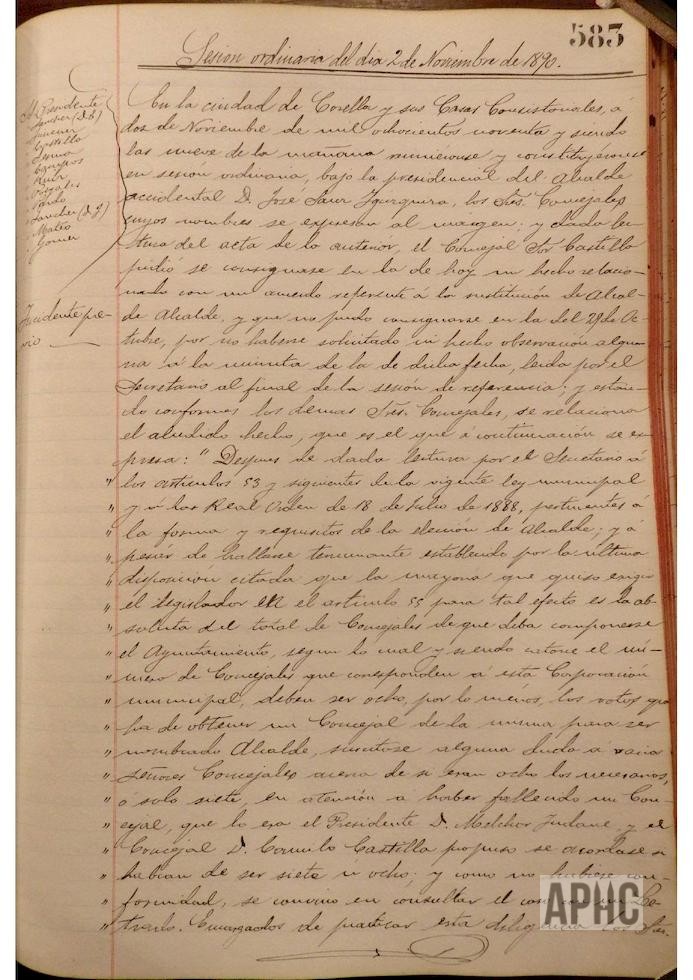 583
Sesion ordinaria del dia 2 de Noviembre de 1890.
Sr. Presidente
Sanchez (D. E)
Jimenez
Castillo
Sesma
Ruiz
Gonzales
Pardo
Sanchez (D. J)
Mateo
Gomez
En la ciudad de Corella y sus Casas Consistoriales, á
dos de Noviembre de mil ochocientos noventa y siendo
las nueve de la mañana reuniéronse y constituyéronse
en sesión ordinaria, bajo la presidencial del Alcalde
accidental D. José Sanz Yzurquiza, los Sres. Concejales
cuyos nombres se expresan al margen; y dada lec-
tura del acta de la anterior, el Concejal Sor Castilla
pidió se consignase en la de hoy un hecho relacio-
Incidente pre-
vio
nado con un acuerdo referente á la sustitución de Alcal-
de Alcalde, y que no pudo consignarse en la del 29 de Oc-
tubre, por no haberse solicitado ni hecho observacion algu-
na á la minuta de la de dicha fecha, leida por el
Secretario al final de la sesión de referencia; y estan-
do conformes los demas Sres. Concejales, se relaciona
el aludido hecho, que es el que á continuación se ex-
presa: " Despues de dada lectura por el Secretario á
" los artículos 53 y siguientes de la vigente ley municipal
" y á las Real Orden de 18 de Julio de 1888, pertinentes á
" la forma y requisitos de la elección de Alcalde; y á
" pesar de hallarse terminante establecido por la última
" disposición citada que la mayoria que quiso exigir
" el legislador en el artículo 55 para tal efecto es la ab-
" soluta del total de Concejales de que deba componerse
" el Ayuntamiento, segun lo cual y siendo catorce el nú-
" mero de Concejales que corresponden á esta Corporación
" municipal, deben ser ocho, por lo menos, los votos que
" ha de obtener un Concejal de la misma para ser
" nombrado Alcalde, suscitóse alguna duda á varios
" señores Concejales acerca de si eran ocho los necesarios,
" ó solo siete, en atención a haber fallecido un Con-
" cejal, que lo era el Presidente D. Melchor y el
" Concejal D. Camilo Castilla propuso se acordase si
" habian de ser siete ú ocho; y como no hubiese con-
" formidad, se convino en consultar el caso con un Le-
" trado. Encargados de practicar esta diligencia los Sres.
APHC